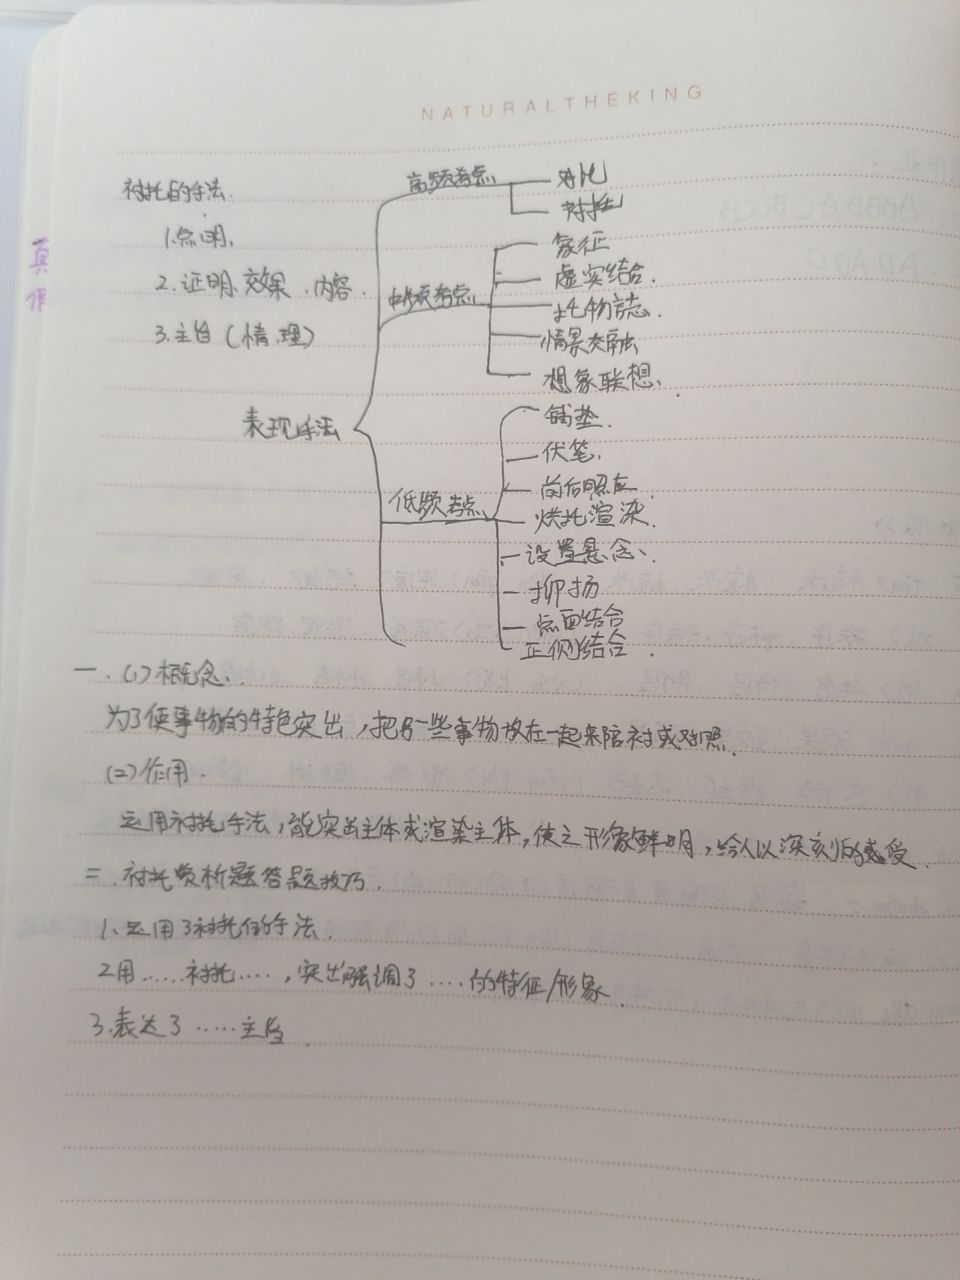 NATURALTHEKING
衬托的手法.
1.点明.
2.证明.效果.内容.
3.主旨(情.理)
真
表现手法
高频考点.
对比
衬托
中频考点.
象征
虚实结合.
托物言志.
情景交融
想象联想.
低频考点.
铺垫.
伏笔.
前后照应.
烘托渲染.
设置悬念.
抑扬
点面结合
正侧结合.
一.(1)概念.
为了使事物的特色突出,把另一些事物放在一起来陪衬或对照.
(二)作用.
运用衬托手法,能突出主体或渲染主体,使之形象鲜明,给人以深刻的感受.
二.衬托赏析题答题技巧.
1.运用了衬托的手法.
2用……衬托……,突出/强调了….的特征/形象.
3.表达了……主旨.